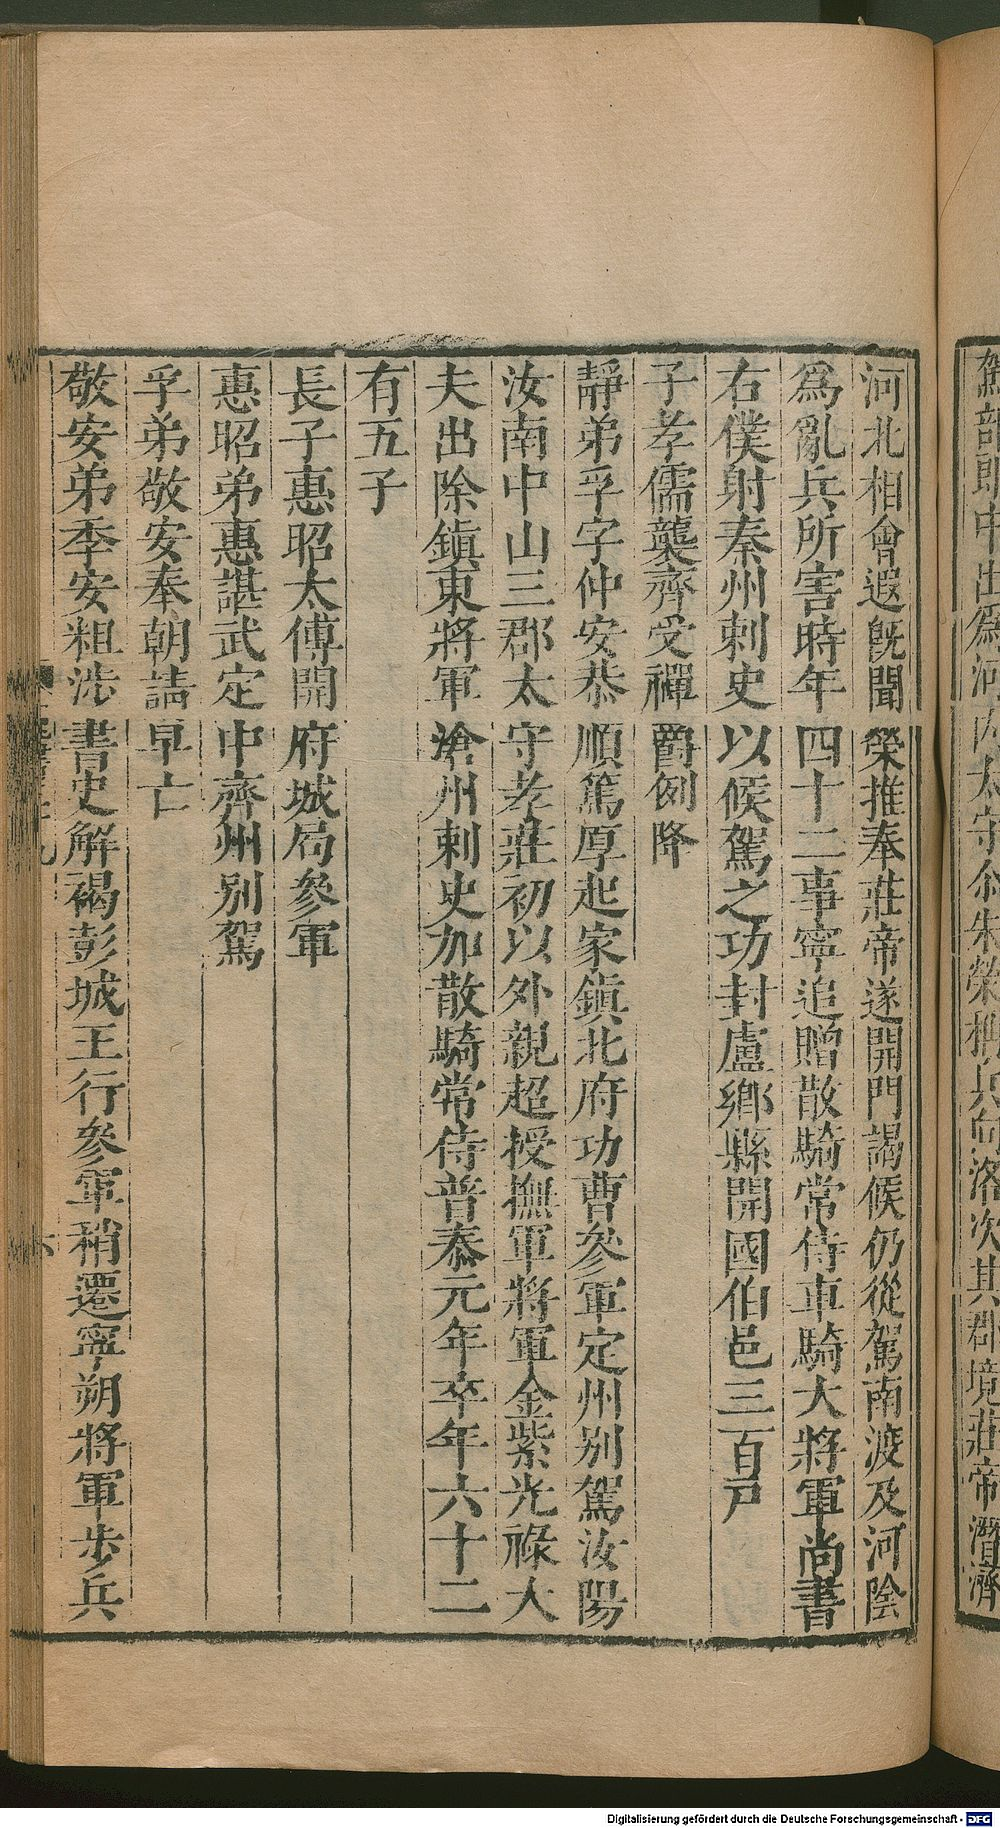 駕部郎中出為河內太守尒朱榮稱兵向洛次其郡境莊帝潛濟
河北相會遐旣聞榮推奉莊帝遂開門謁候仍從駕南渡及河陰
爲亂兵所害時年四十二事寧追贈散騎常侍車騎大將軍尚書
右僕射秦州刺史以候駕之功封盧鄉縣開國伯邑三百戸
子孝儒襲齊受禪爵例降
靜弟孚字仲安恭順篤厚起家鎭北府功曹參軍定州別駕汝陽
汝南中山三郡太守孝莊初以外親超授撫軍將軍金紫光祿大
夫出除鎭東將軍滄州刺史加散騎常侍普泰元年卒年六十二
有五子
長子惠昭太傅開府城局參軍
惠昭弟惠諶武定中齊州別駕
孚弟敬安奉朝請早亡
敬安弟季安粗涉書史解褐彭城王行參軍稍遷寧朔將軍步兵
Digitalisierung gefördert durch die Deutsche Forschungsgemeinschaft - DFG